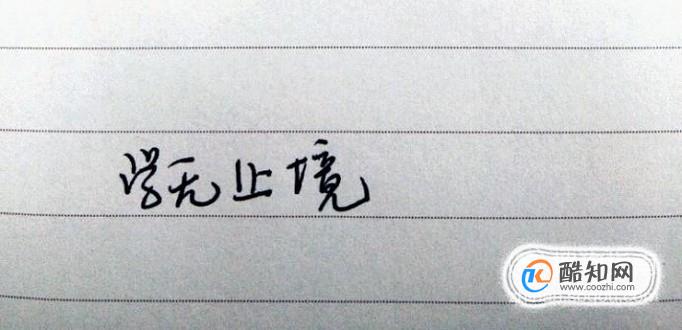 学无止境
酷知网
www.coozhi.com